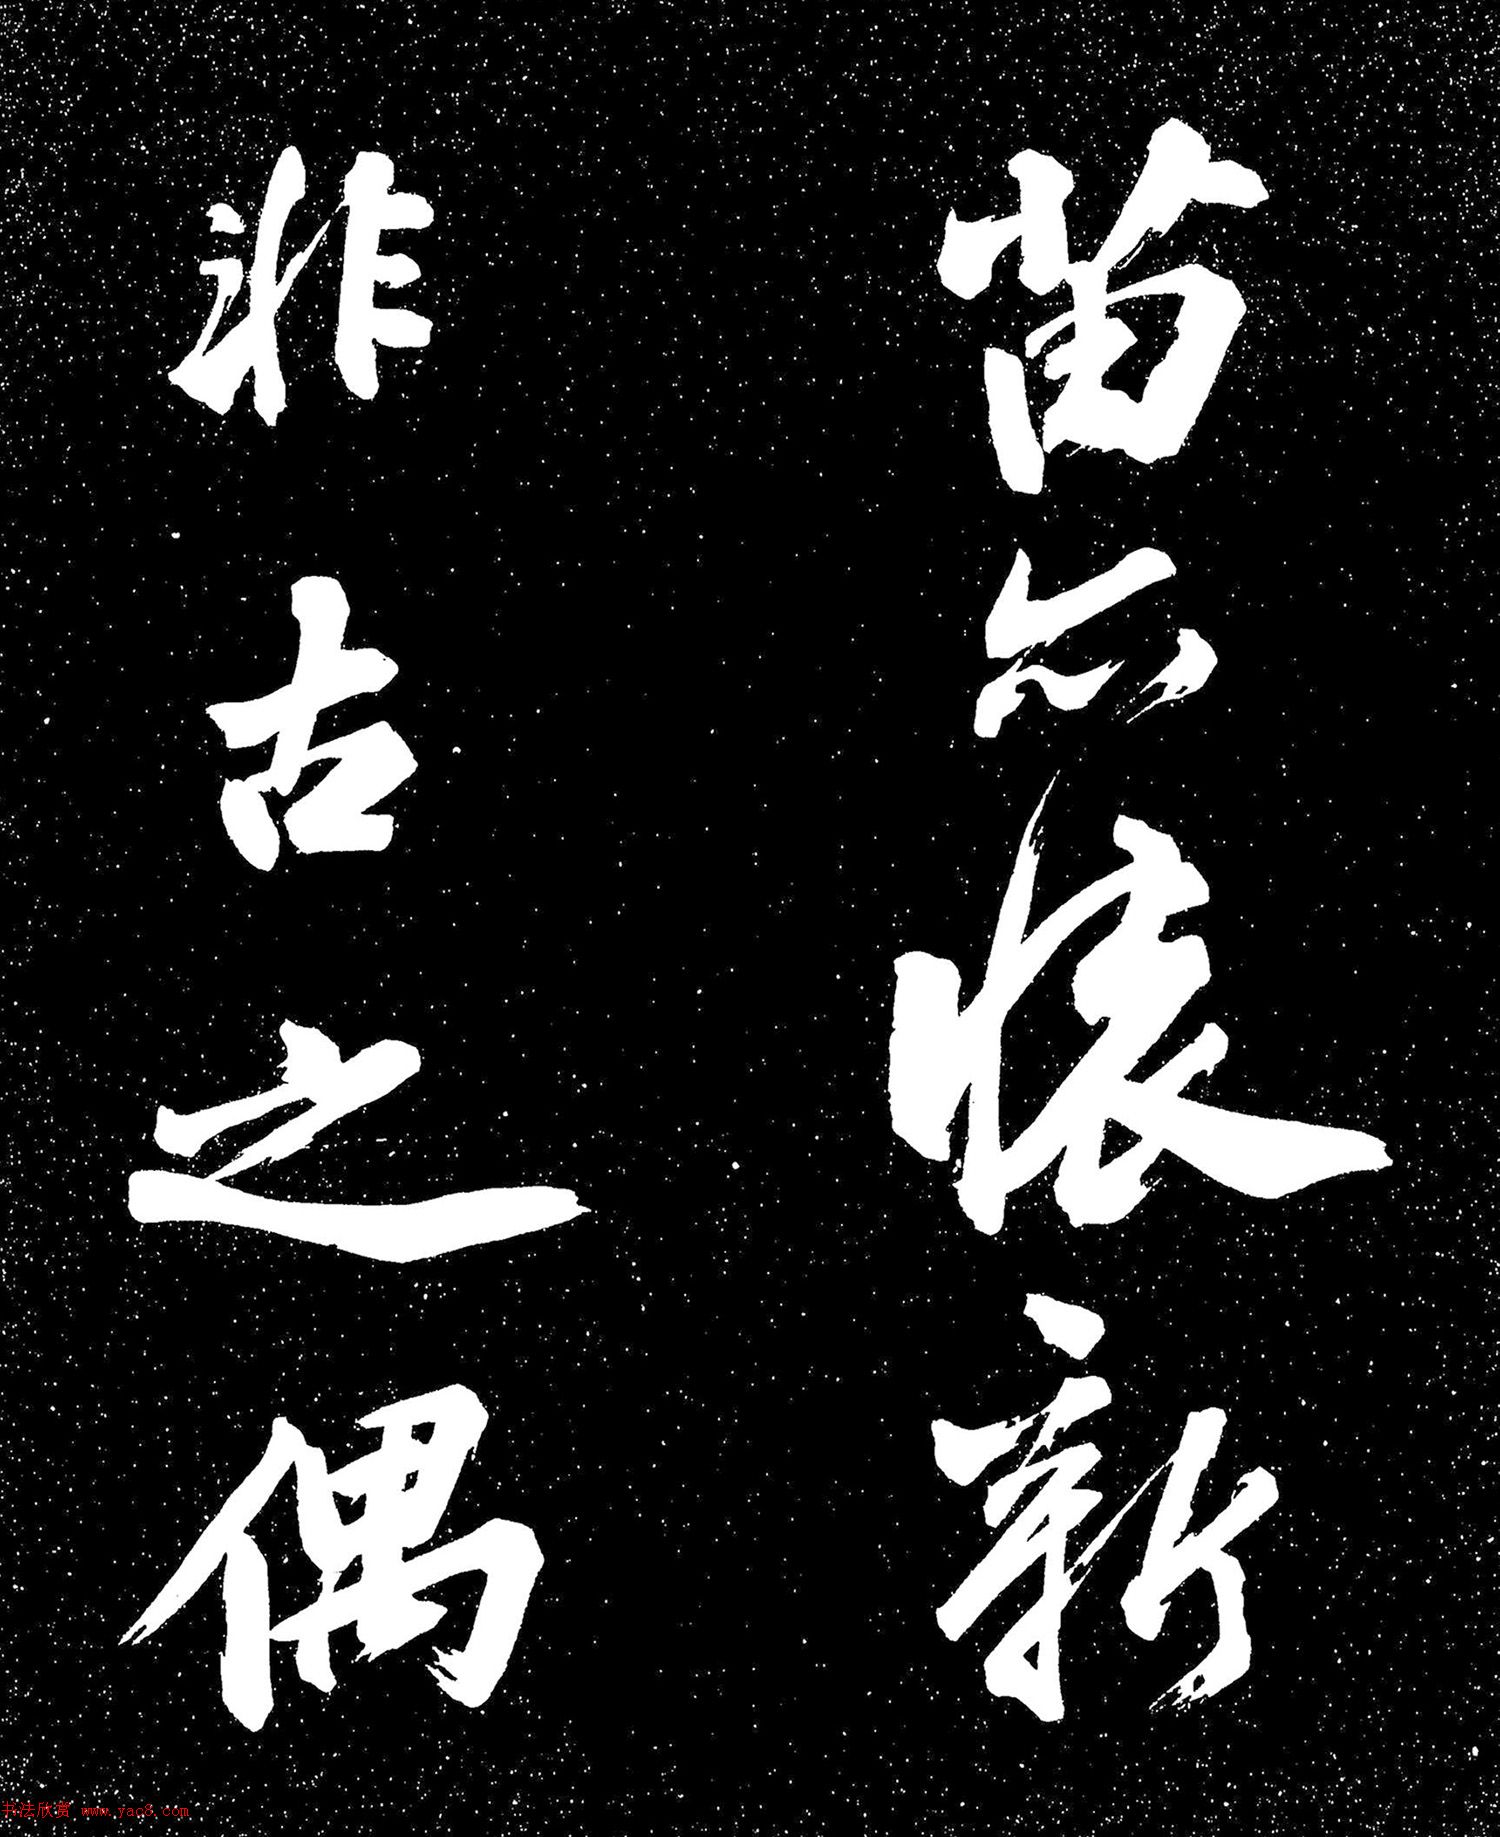 苗亦怀新
非古之偶
书法欣赏 www.yac8.com